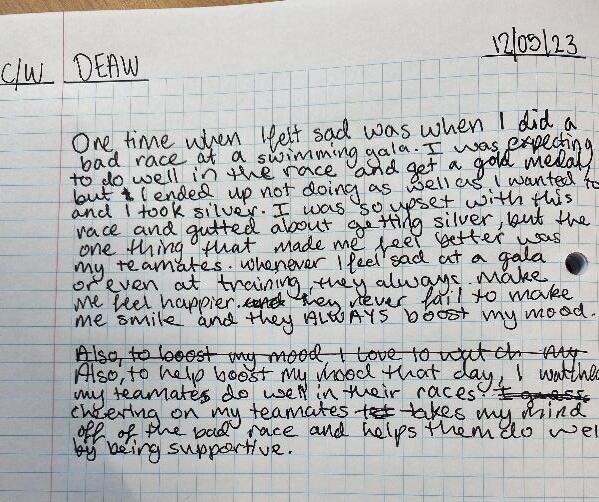 12/09/23
C/W DEAW
One time when I felt sad was when I did a
bad race at a swimming gala. I was expecting
to do well in the race and get a gold medal,
but I ended up not doing as well as I wanted to
and I took silver. I was so upset with this
race and gutted about getting silver, but the
one thing that made me feel better was
my teamates. Whenever I feel sad at a gala
or even at training, they always make
me feel happier. and they never fail to make
me smile and they ALWAYS boost my mood.
Also, to boost my mood I love to watch my
Also, to help boost my mood that day, I watched
my teamates do well in their races. I guess
cheering on my teamates takes my mind
off of the bad race and helps them do well
by being supportive.